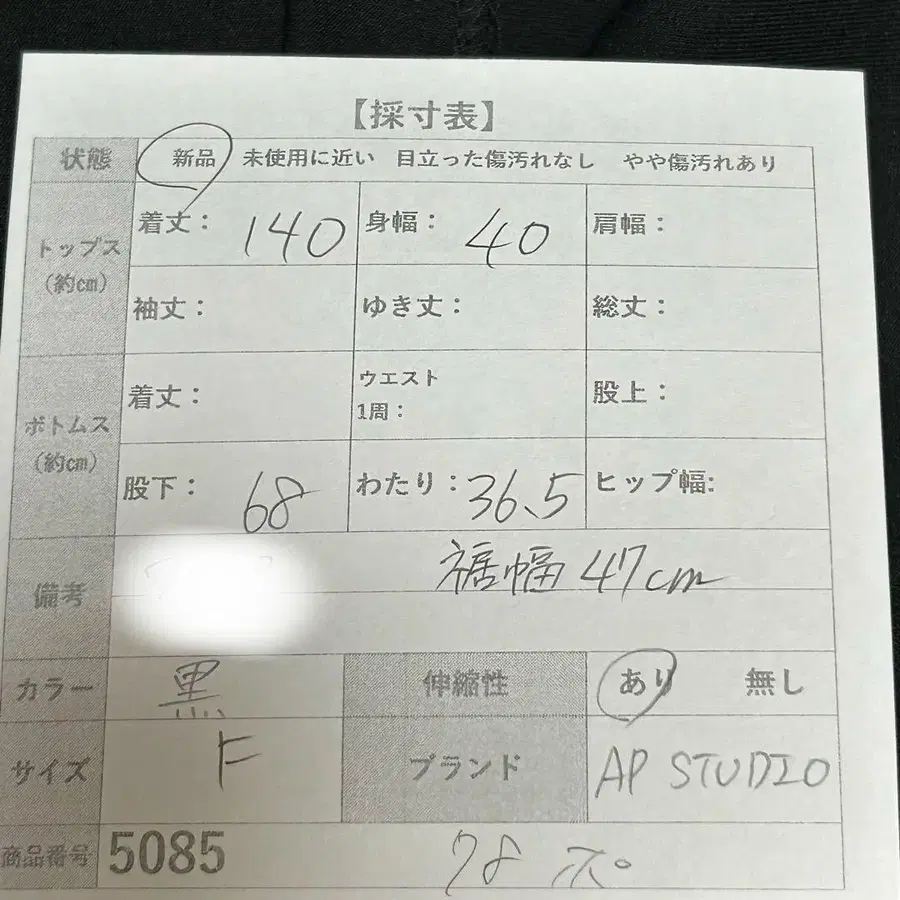 【採寸表】
状態 新品 未使用に近い 目立った傷汚れなし やや傷汚れあり
トップス
(約cm)
着丈： 140 身幅： 40 肩幅：
袖丈： ゆき丈： 総丈：
ボトムス
(約cm)
着丈： ウエスト
1周： 股上：
股下： 68 わたり： 36.5 ヒップ幅:
備考 裾幅 47cm
カラー 黒 伸縮性 あり 無し
サイズ F ブランド AP STUDIO
商品番号 5085